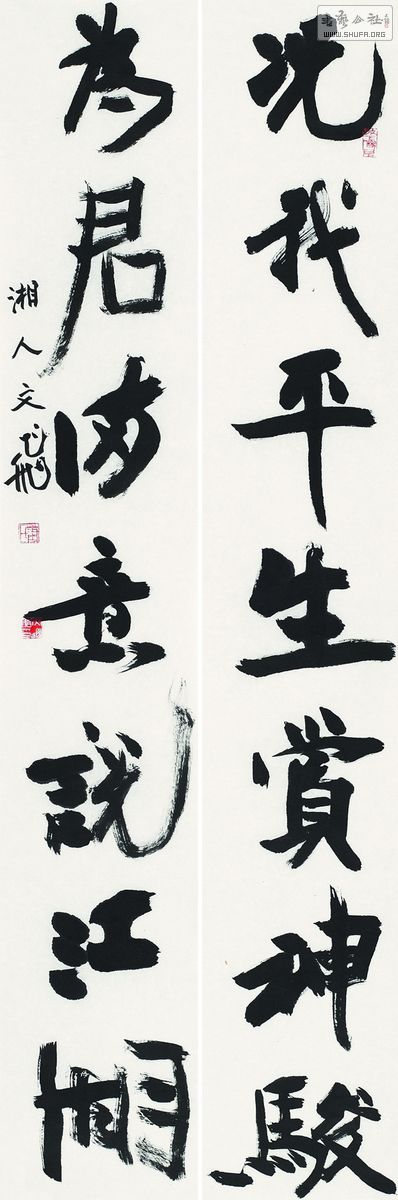 况我平生賞神駿
為君滿意說江湖
湘人文
书艺公社
WWW.SHUFA.ORG